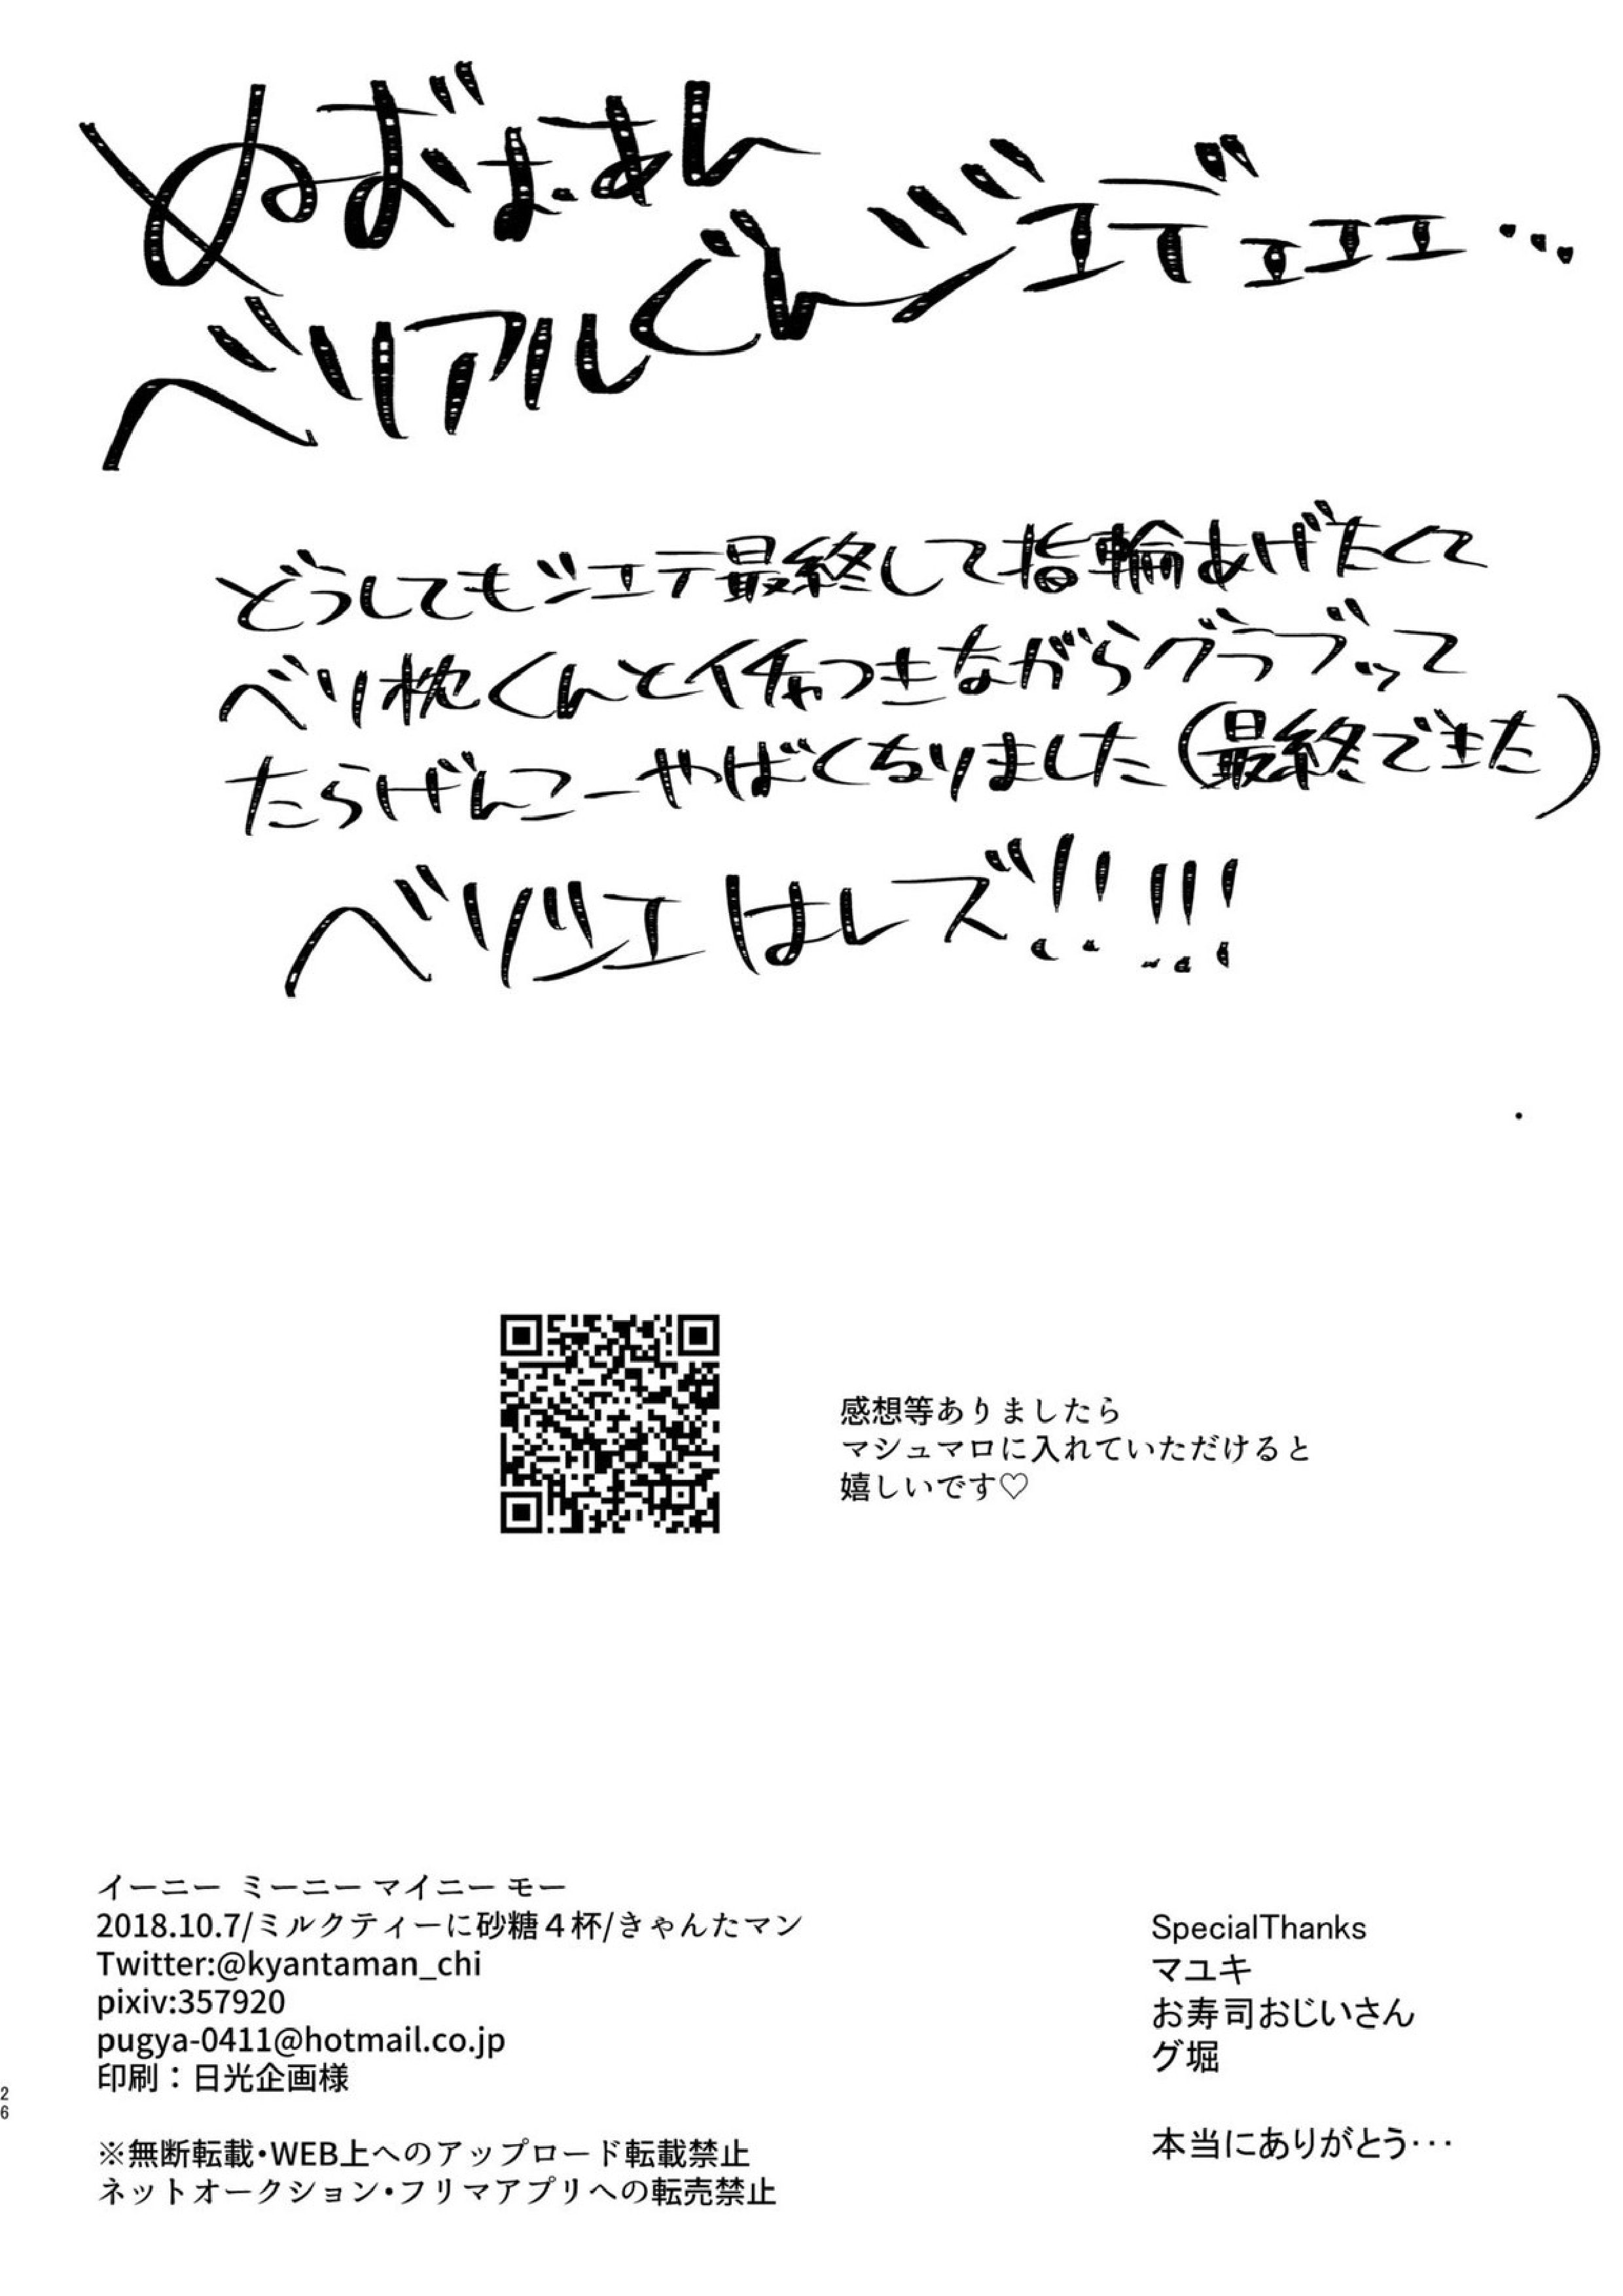 ぬおおぉあん
ベリアルぐんジエデェェェ…
どうしてもシエテ最終して指輪あげたくて
ベリ枕くんとイチャつきながらグラブッて
たらげんこーやばくなりました(最終できた)
ベリジエはレズ!!!!!
感想等ありましたら
マシュマロに入れていただけると
嬉しいです♡
イーニー ミーニー マイニー モー
2018.10.7/ミルクティーに砂糖４杯/きゃんたマン
Twitter:@kyantaman_chi
pixiv:357920
pugya-0411@hotmail.co.jp
印刷：日光企画様
※無断転載・WEB上へのアップロード転載禁止
ネットオークション・フリマアプリへの転売禁止
SpecialThanks
マユキ
お寿司おじいさん
グ堀
本当にありがとう・・・
26